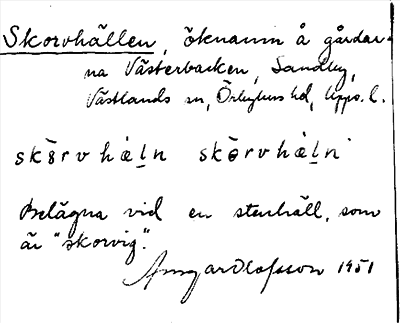 Skorvhällen, öknamn å gårdar-
na Västerbacken, Sandby,
Västlands sn, Örbyhus hd, Upps. l.
skŏ̀rvhàḷn skɵ̀rvhàḷn
Belägna vid en stenhäll, som
är "skorvig".
Olofsson 1951